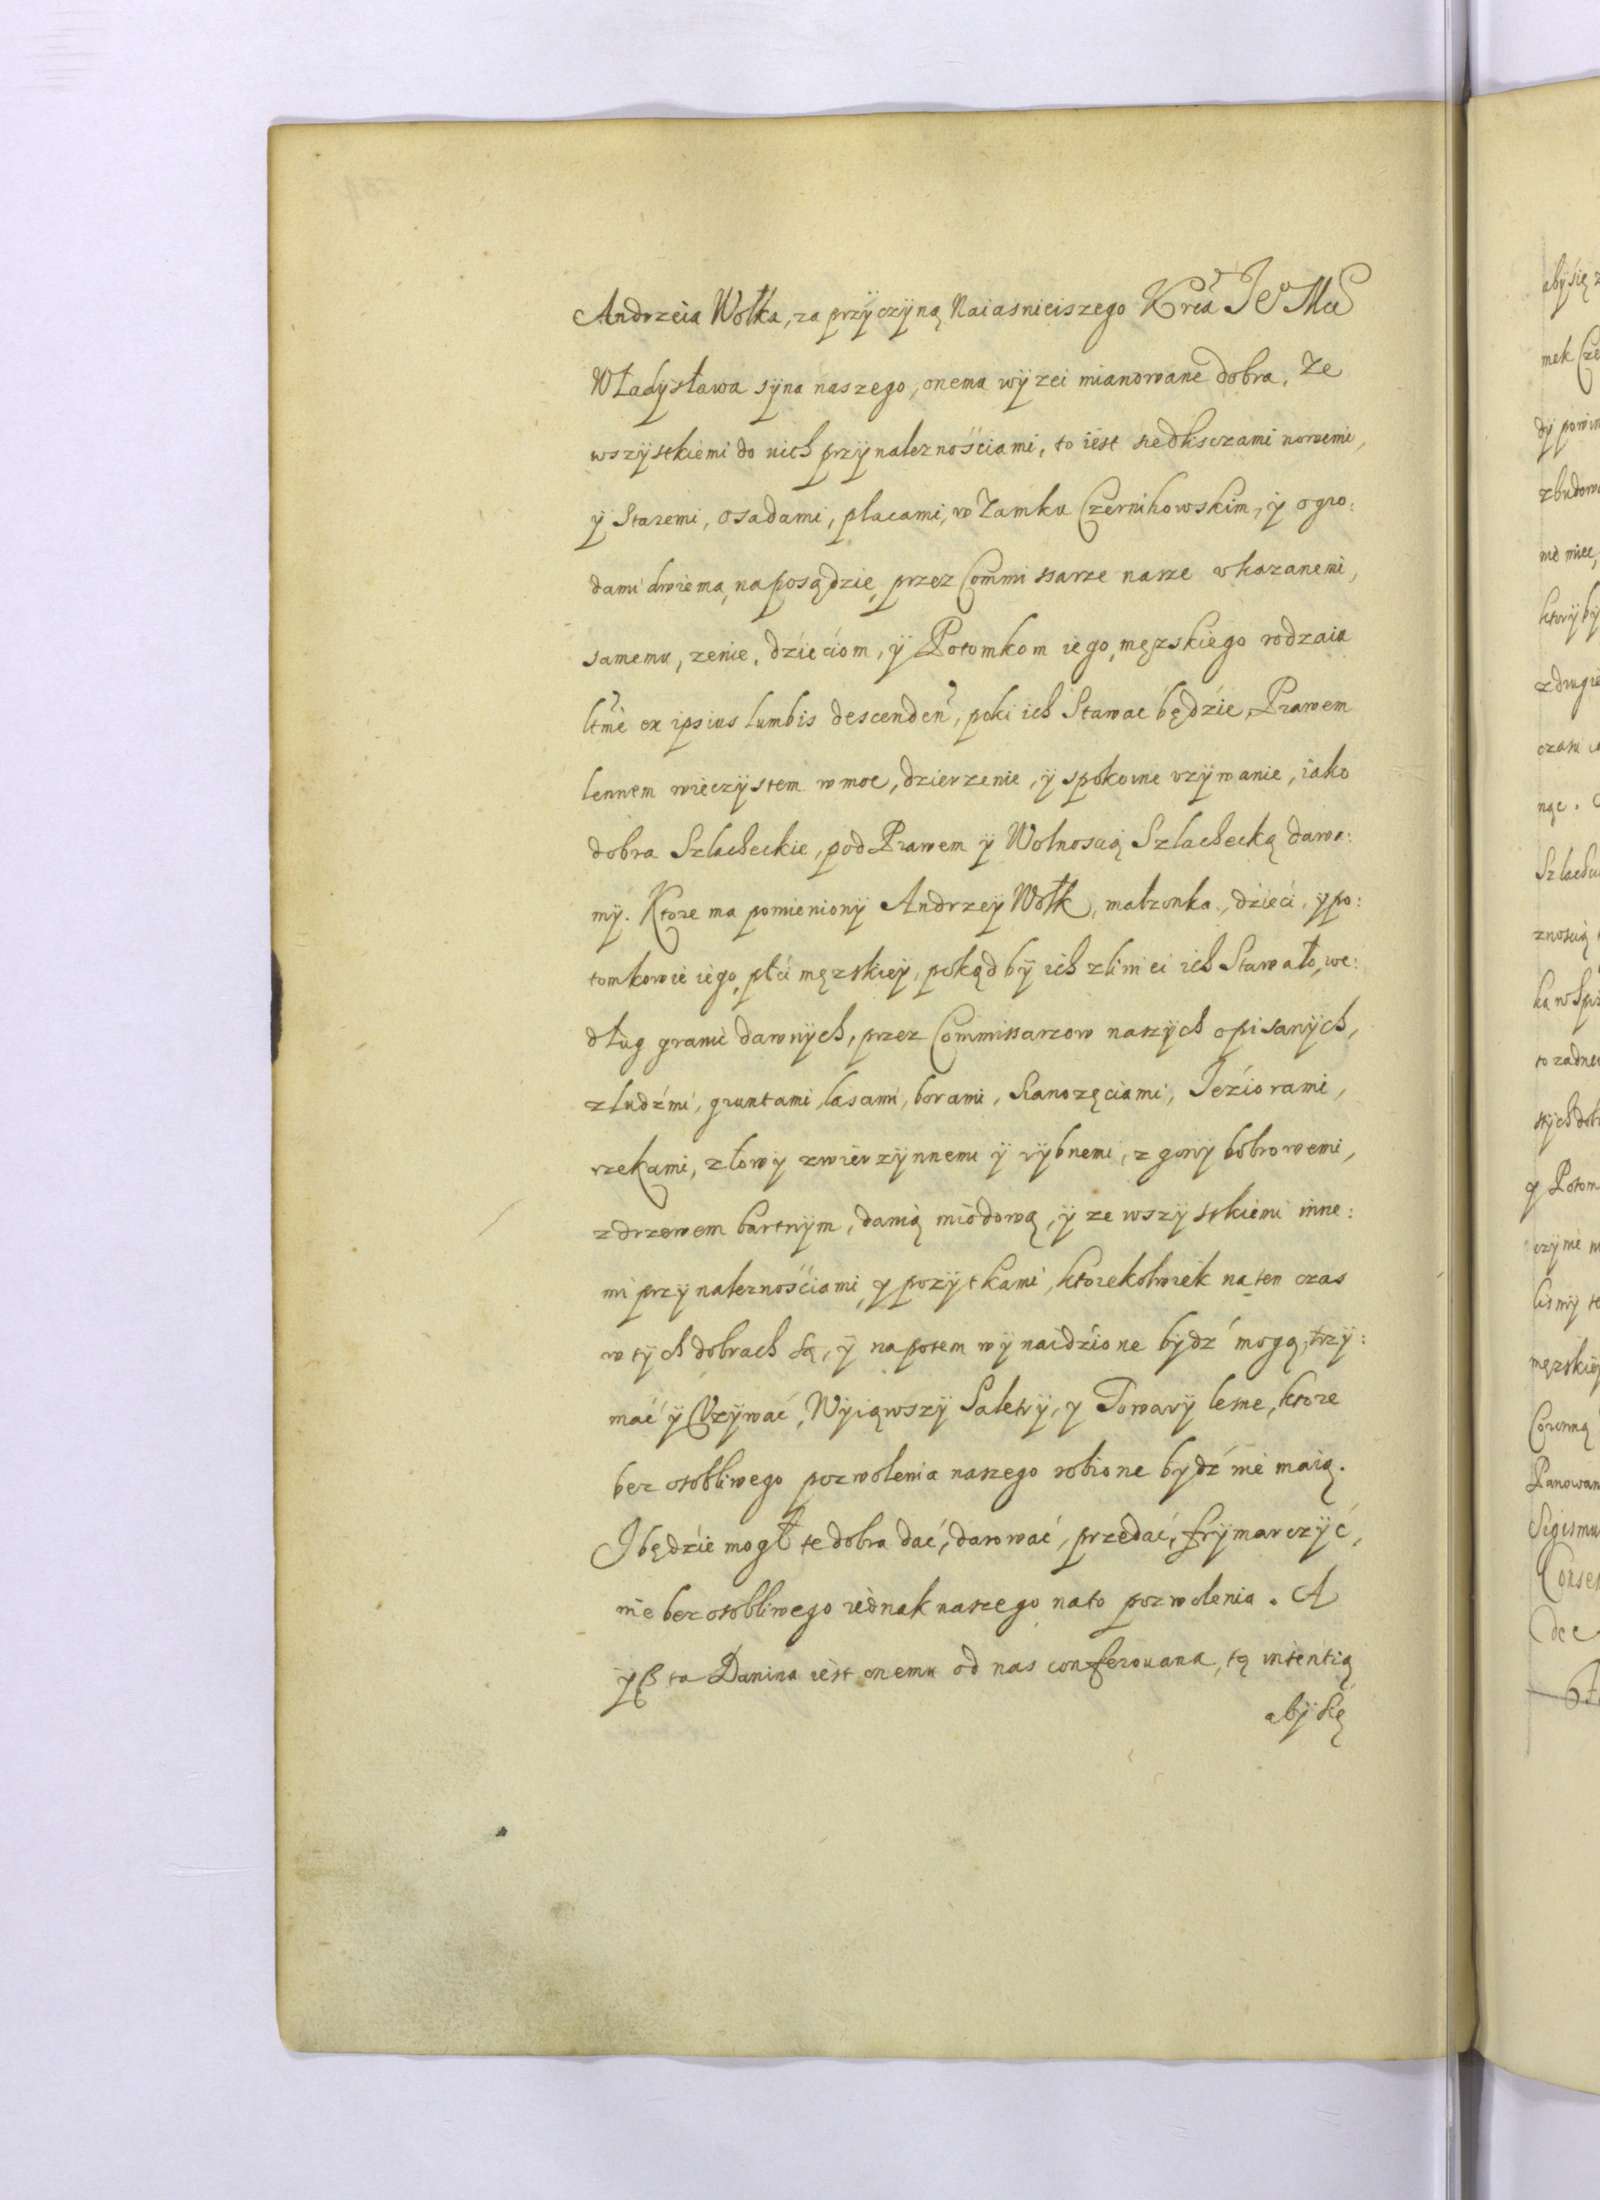 Andrzeia Wołka, za przÿczÿną Naiasnieiszego Krea JeoMci
Władÿsława sÿna naszego, onemu wÿzei mianowane dobra, Ze
wszÿstkiemi do nich przÿnaleznościami, to iest siedliszczami nowemi,
ÿ Staremi, osadami, placami, w Zamku Czernihowskim, ÿ ogro:
dami dwiema, na posądzie, przez Commissarze nasze vkazanemi,
samemu, zenie, dzieciom, ÿ Potomkom iego, męzskiego rodzaiu
ltme ex ipsius lumbis descenden, poki ich Stawac będzie, Prawem
lennem wieczÿstem w moc, dzierzenie, ÿ spokoine vzÿwanie, iako
dobra Szlacheckie, pod Prawem ÿ Wolnoscią Szlachecką dawa:
mÿ. Ktore ma pomienionÿ Andrzeÿ Wołk, małzonka, dzieci, ÿ po:
tomkowie iego, płci męzskieÿ, pokąd bÿ ich z liniei ich Stawało, we:
dług granic dawnÿch, przez Commissarzow naszÿch opisanÿch,
z ludźmi, gruntami, lasami, borami, Sianozęciami, Jeziorami,
rzekami, z łowÿ zwierzÿnnemi ÿ rÿbnemi, z gonÿ bobrowemi,
z drzewem bartnÿm, danią miodową, ÿ ze wszÿstkiemi inne:
mi przÿnaleznościami, ÿ pozÿtkami, ktorekolwiek na ten czas
w tÿch dobrach są, ÿ na potem wÿnaidzione bÿdź mogą, trzÿ:
mać ÿ Vzÿwać, Wÿiąwszÿ Saletrÿ, ÿ Towarÿ lesne, ktore
bez osobliwego pozwolenia naszego robione bÿdź nie maią.
J będzie mogł te dobra dać, darować, przedać, frÿmarczÿć,
nie bez osobliwego iednak naszego na to pozwolenia. A
ÿß ta Danina iest onemu od nas conferowana, tą intentią
abÿ się